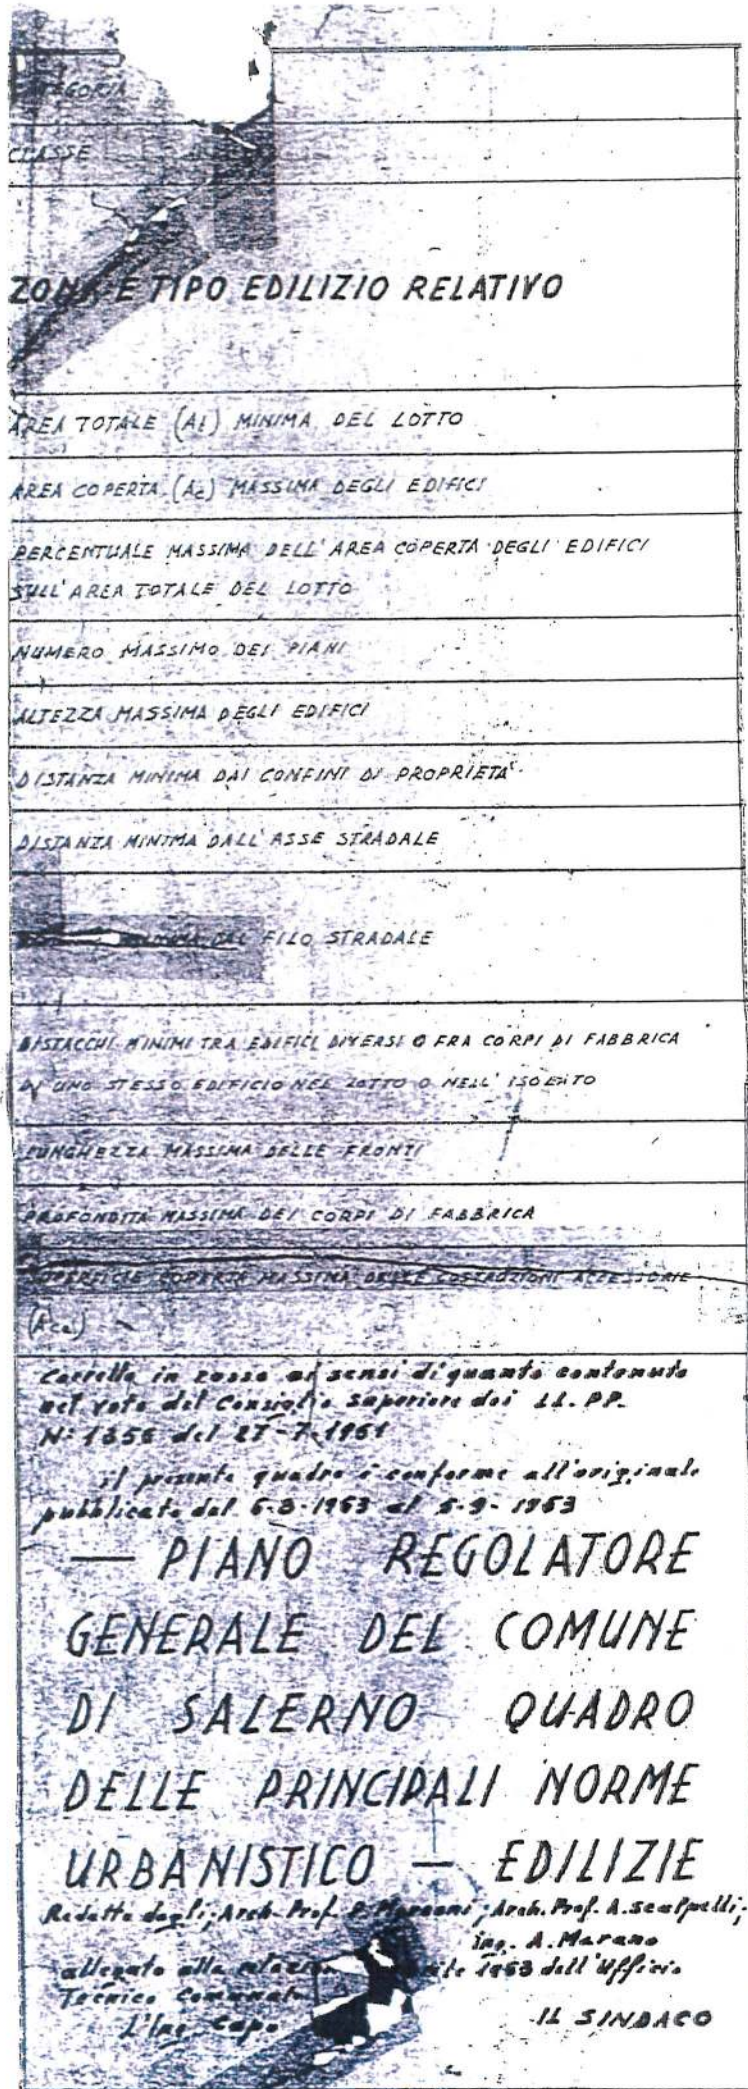 CATEGORIA
CLASSE
ZONA E TIPO EDILIZIO RELATIVO
AREA TOTALE (At) MINIMA DEL LOTTO
AREA COPERTA (Ac) MASSIMA DEGLI EDIFICI
PERCENTUALE MASSIMA DELL'AREA COPERTA DEGLI EDIFICI
SULL'AREA TOTALE DEL LOTTO
NUMERO MASSIMO DEI PIANI
ALTEZZA MASSIMA DEGLI EDIFICI
DISTANZA MINIMA DAI CONFINI DI PROPRIETA'
DISTANZA MINIMA DALL'ASSE STRADALE
MINIMA DAL FILO STRADALE
DISTACCHI MINIMI TRA EDIFICI DIVERSI O FRA CORPI DI FABBRICA
DI UNO STESSO EDIFICIO NEL LOTTO O NELL'ISOLATO
LUNGHEZZA MASSIMA DELLE FRONTI
PROFONDITÀ MASSIMA DEI CORPI DI FABBRICA
SUPERFICIE COPERTA MASSIMA DELLE COSTRUZIONI ACCESSORIE
(Aca)
Corretto in rosso ai sensi di quanto contenuto
nel voto del Consiglio Superiore dei LL.PP.
N° 1356 del 27-7-1961
il presente quadro è conforme all'originale
pubblicato dal 6-8-1963 al 5-9-1963
— PIANO REGOLATORE
GENERALE DEL COMUNE
DI SALERNO QUADRO
DELLE PRINCIPALI NORME
URBANISTICO — EDILIZIE
Redatto dagli; Arch. Prof. P. Marconi; Arch. Prof. A. Scalpelli;
Ing. A. Marano
allegato alla 1963 dell'Ufficio
Tecnico
L'Ing. Capo
IL SINDACO